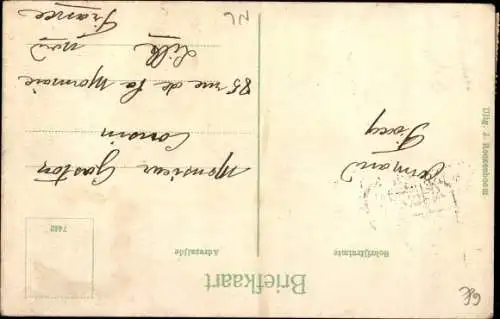 Briefkaart
Schrijfruimte
Adreszijde
7482
Armand
Monsieur Gaston
85 rue de la Monnaie
Lille
nord
France
Uitg. J. Roozenboom
NL